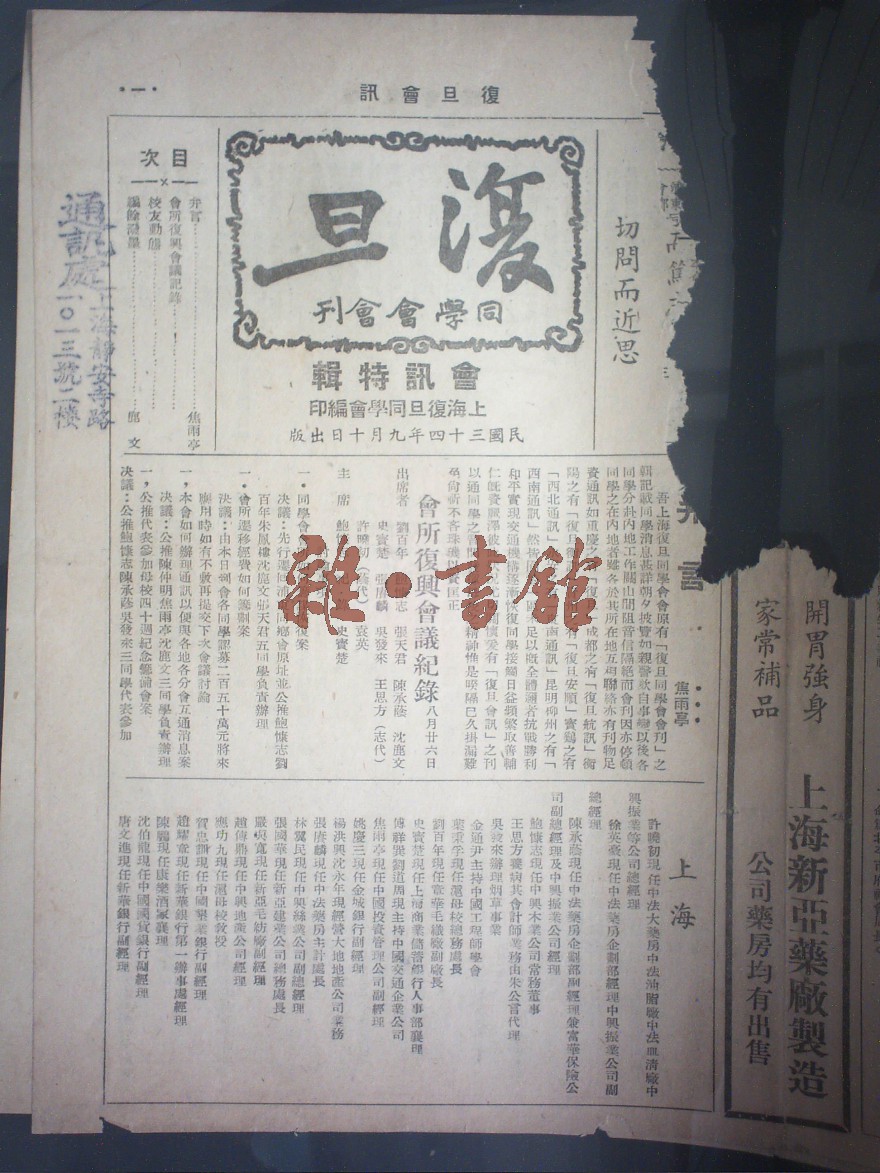 復旦會訊
·一·
切問而近思
復旦
同學會會刊
會訊特輯
上海復旦同學會編印
民國三十四年九月十日出版
目次
弁言
焦雨亭
會所復興會議紀錄
校友動態
鹿文
通訊處 上海靜安寺路
一〇一三號二樓
弁言
焦雨亭
吾上海復旦同學會會原有「復旦同學會會刊」之
輯記載同學消息甚詳朝夕披覽如親聲欬自事變以後各
同學分赴內地工作關山間阻音信隔絕而會刊因亦停頓
同學之在內地者雖各於其所在地互相聯絡亦有刊物足
資通訊如重慶之「復旦
成都之有「復旦航訊」衡
陽之有「復旦
有「復旦安順」寶鷄之有
「西北通訊」
南通訊」昆明柳州之有「
西南通訊」然
足以概全體識者抗戰勝利
和平實現交通機構逐漸恢復同學接觸日益頻繁取善輔
仁既資麗澤
懷愛有「復旦會訊」之刊
以通同學之
精神惟是暌隔已久掛漏難
免尚祈不吝珠璣以資匡正
會所復興會議紀錄 八月廿六日
出席者 劉百年
志 張天君 陳承蔭 沈鹿文
史寶楚 張府麟 吳發來 王思方(志代)
許曉初(蔭代) 袁英
主席 鮑
史寶楚
一·同學會
復案
決議:先行
同鄉會原址並公推鮑慷志劉
百年朱鳳樓沈鹿文張天君五同學負責辦理
一·會所遷移經費如何籌劃案
決議:由本日到會各同學認募二百五十萬元將來
應用時如有不敷再提交下次會議討論
一,本會如何辦理通訊以便與各地各分會互通消息案
決議:公推陳仲明焦雨亭沈鹿文三同學負責辦理
一,公推代表參加母校四十週紀念籌備會案
決議:公推鮑慷志陳承蔭吳發來三同學代表參加
上海
許曉初現任中法大藥房中法油脂廠中法血清廠中
興振業等公司總經理
徐英豪現任中法藥房企劃部經理中興振業公司副
總經理
陳承蔭現任中法藥房企劃部副經理兼富華保險公
司副總經理及中興振業公司經理
鮑慷志現任中興木業公司常務董事
王思方養病其會計師業務由朱公言代理
吳發來辦理烟草事業
金通尹主持中國工程師學會
葉秉孚現任滬母校總務處長
劉百年現任章華毛織廠副廠長
史寶楚現任上海商業儲蓄銀行人事部襄理
傅祥巽劉道周現主持中國交通企業公司
焦雨亭現任中國投資管理公司副經理
姚慶三現任金城銀行副經理
楊洪興沈永年現經營大地地產公司業務
張府麟現任中法藥房主計處長
林翼民現任中興絲業公司副總經理
張國華現任新亞建業公司總務處長
嚴奭寬現任新亞毛紡廠副經理
趙傳鼎現任中興地產公司經理
應功九現任滬母校教授
賀忠訓現任中國墾業銀行副經理
趙耀章現任新華銀行第一辦事處經理
陳鵬現任康樂酒家襄理
沈伯龍現任中國國貨銀行副經理
唐文進現任新華銀行副經理
開胃強身
家常補品
上海新亞藥廠製造
公司藥房均有出售
雜·書館